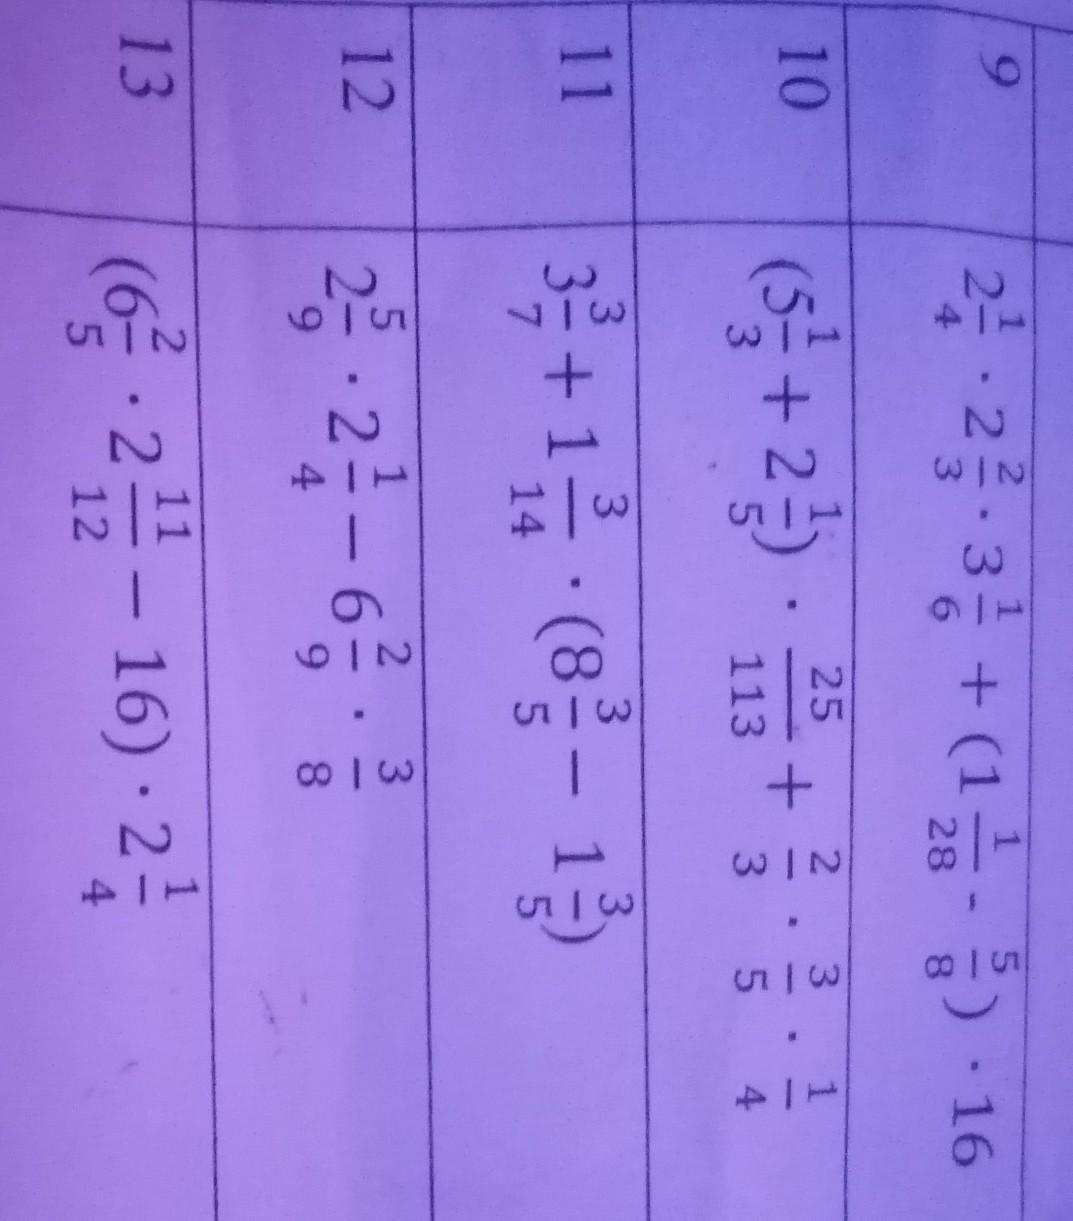 9 2 1/4 · 2 2/3 · 3 1/6 + (1 1/28 - 5/8) · 16
10 (5 1/3 + 2 1/5) · 25/113 + 2/3 · 3/5 · 1/4
11 3 3/7 + 1 3/14 · (8 3/5 − 1 3/5)
12 2 5/9 · 2 1/4 − 6 2/9 · 3/8
13 (6 2/5 · 2 11/12 − 16) · 2 1/4